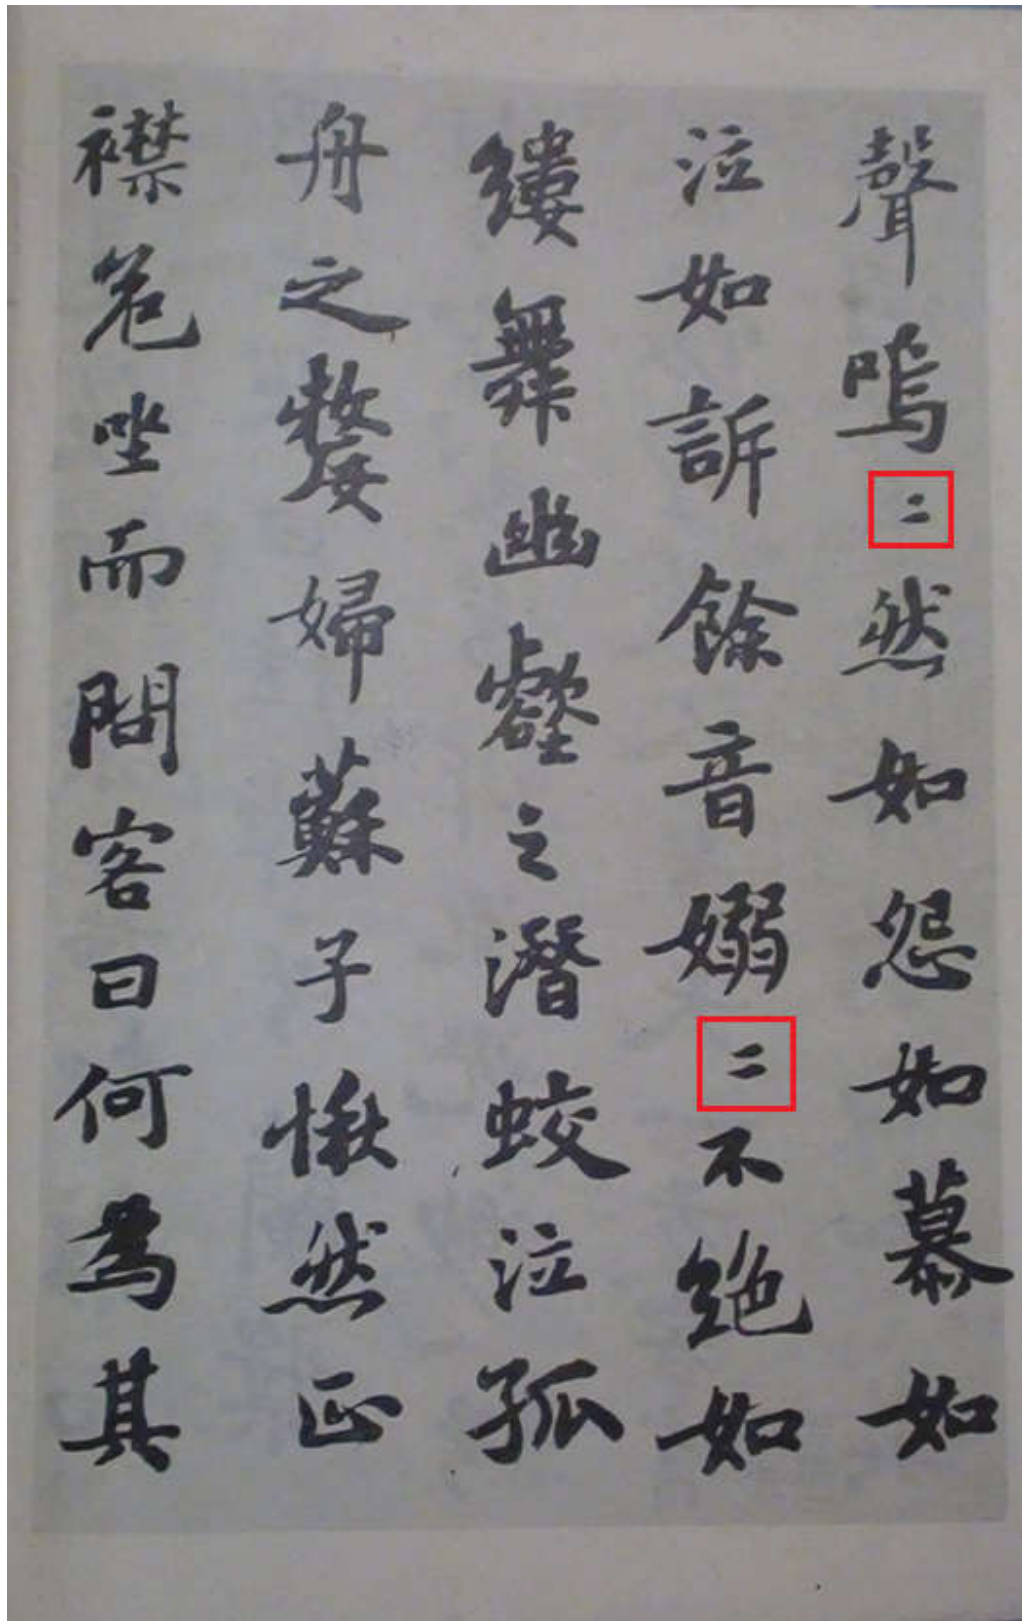 聲嗚〻然如怨如慕如
泣如訴餘音嫋〻不絶如
縷舞幽壑之潛蛟泣孤
舟之嫠婦蘇子愀然正
襟危坐而問客曰何為其